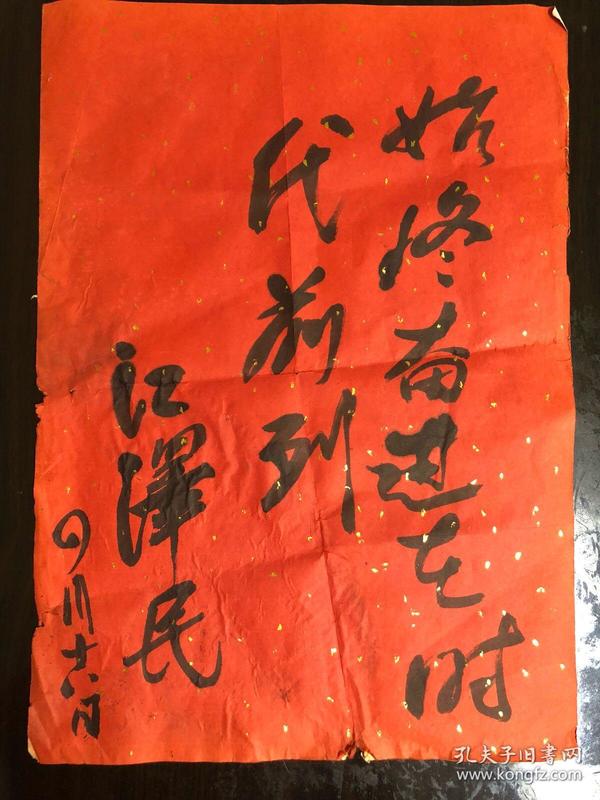 始终奋进在时
代前列
江澤民
四月十八日
孔夫子旧書网
www.kongfz.com